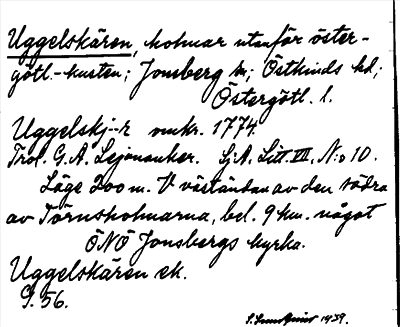 Uggelskären, holmar utanför öster-
götl.-kusten; Jonsberg sn; Östkinds hd;
Östergötl. l.
Uggelskj--r omkr. 1774.
Trol. G.A. Lejonanker. Sj.A. Litt. VII, N:o 10.
Läge 200 m. V väständan av den södra
av Törnsholmarna, bel. 9 km. något
ÖNÖ Jonsbergs kyrka.
Uggelskären ek.
G. 56.
1939.